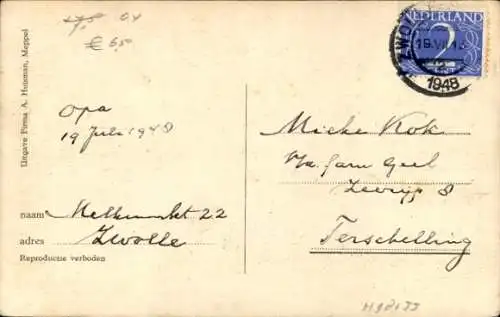 7,5 04
€ 6,5
NEDERLAND
2
ZWOLLE
19.VII.1
1948
Uitgave Firma A. Huisman, Meppel
Opa
19 Juli 1948
naam Melkmarkt 22
adres Zwolle
Reproductie verboden
Mieke Kok
fam Geel
8
Terschelling